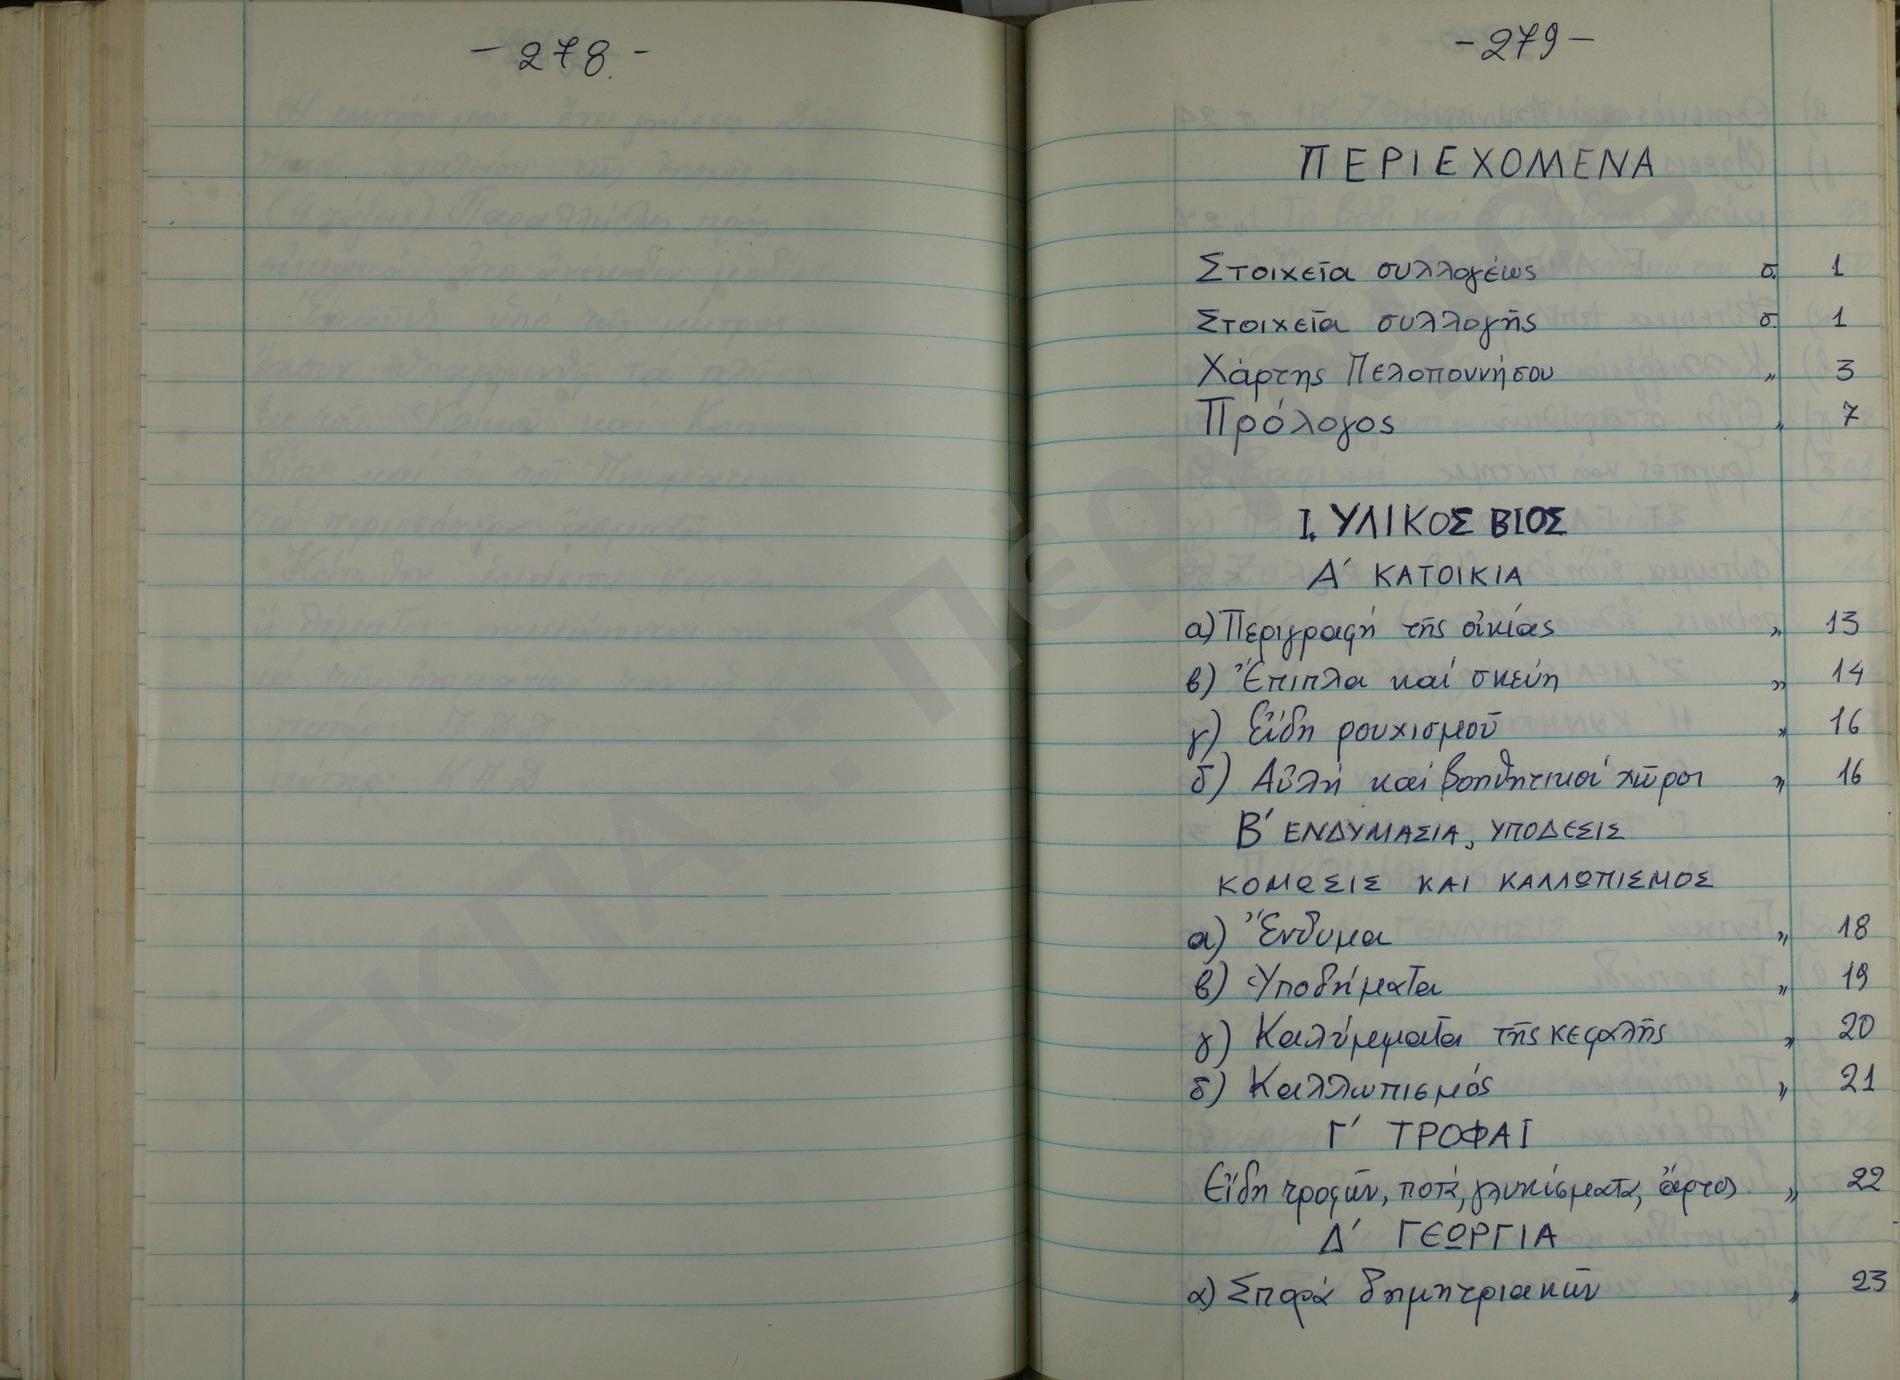 - 278. -
- 279 -
ΠΕΡΙΕΧΟΜΕΝΑ
Στοιχεῖα συλλογέως σ. 1
Στοιχεῖα συλλογῆς σ. 1
Χάρτης Πελοποννήσου " 3
Πρόλογος " 7
Ι. ΥΛΙΚΟΣ ΒΙΟΣ
Α΄ ΚΑΤΟΙΚΙΑ
α) Περιγραφή τῆς οἰκίας " 13
β) Ἔπιπλα καί σκεύη " 14
γ) Εἴδη ρουχισμοῦ " 16
δ) Αὐλή καί βοηθητικοί χῶροι " 16
Β΄ ΕΝΔΥΜΑΣΙΑ, ΥΠΟΔΕΣΙΣ
ΚΟΜΩΣΙΣ ΚΑΙ ΚΑΛΛΩΠΙΣΜΟΣ
α) Ἔνδυμα " 18
β) Ὑποδήματα " 19
γ) Καλύμματα τῆς κεφαλῆς " 20
δ) Καλλωπισμός " 21
Γ΄ ΤΡΟΦΑΙ
Εἴδη τροφῶν, ποτά, γλυκίσματα, ἄρτος " 22
Δ΄ ΓΕΩΡΓΙΑ
α) Σπορά δημητριακῶν " 23